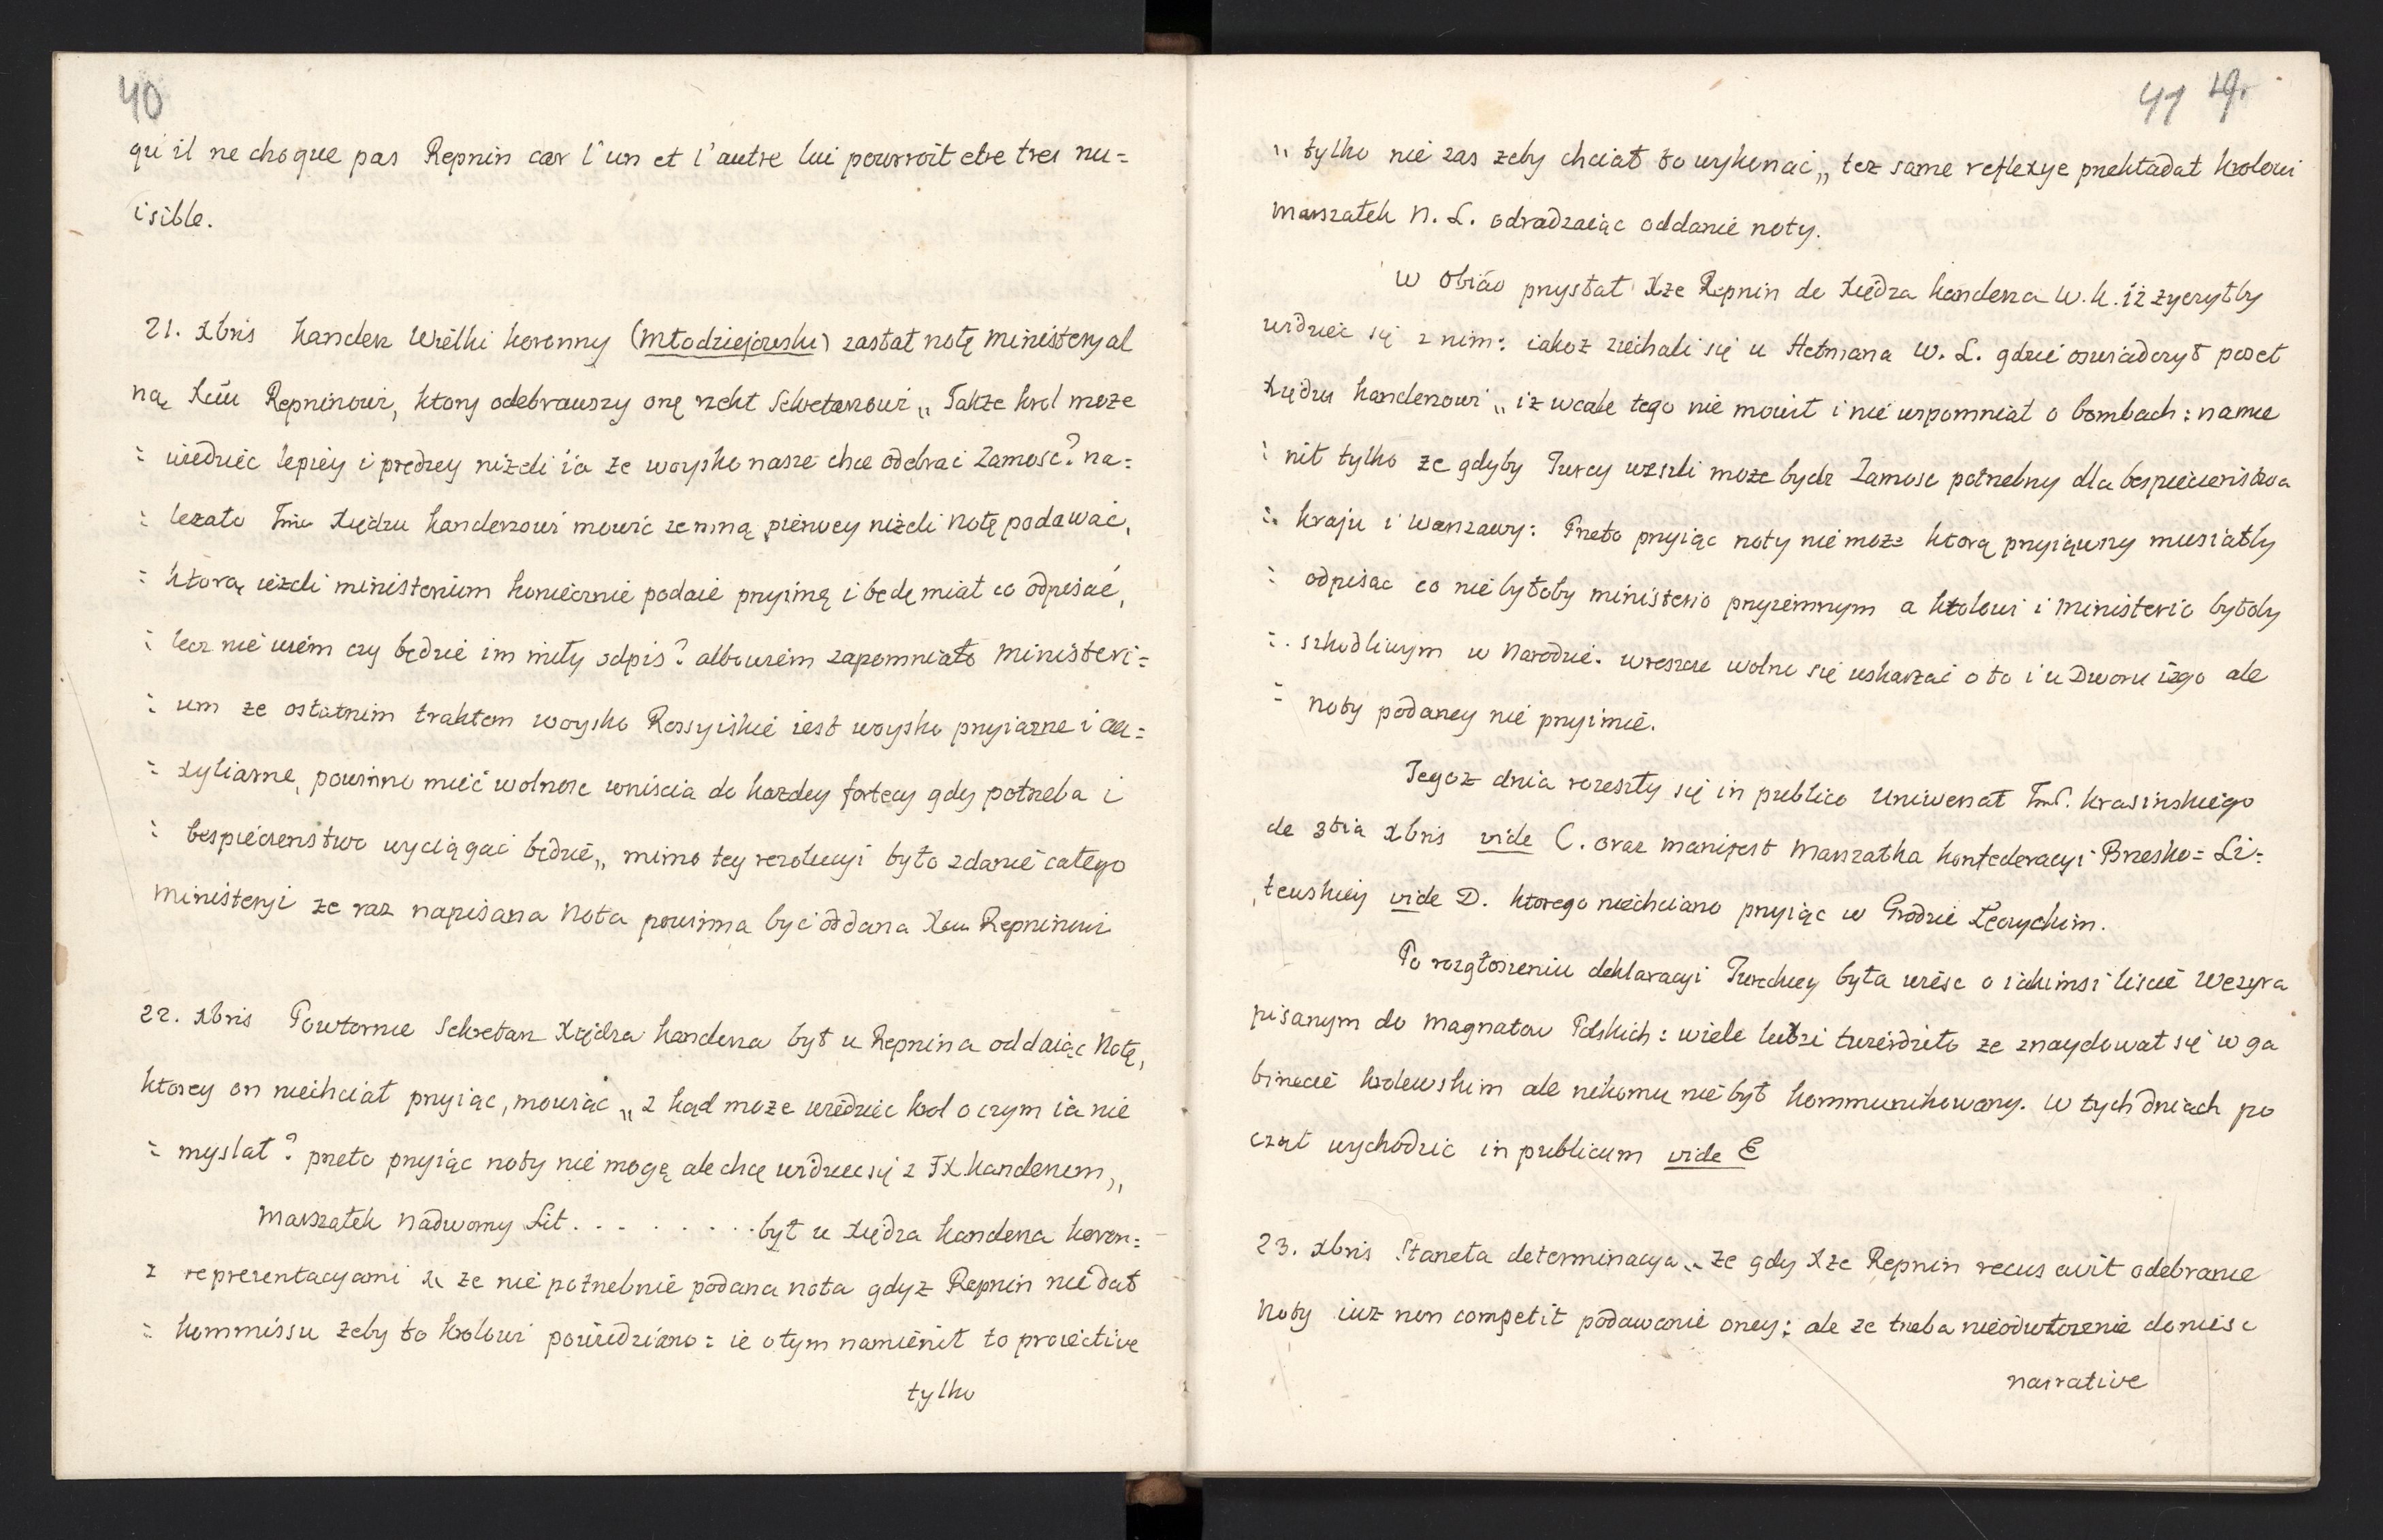 40
qu'il ne choque pas Repnin car l'un et l'autre lui pourroit etre tres nu=
isible.
21. Xbris Kanclerz Wielki koronny (Młodziejowski) zastał notę ministeryal
ną Xciu Repninowi, ktory odebrawszy onę rzekł Sekretarzowi „ Takze krol moze
= wiedziec lepiey i prędzey nizeli ia ze woysko nasze chce odebrac Zamosc? na=
= lezało Jmu Xiędzu Kanclerzowi mowić ze mną pierwey nizeli notę podawac,
= ktorą iezeli ministerium koniecznie podaie przyimę i będę miał co odpisać,
= lecz nie wiem czy będzie im miły odpis? albowiem zapomniało ministeri=
= um ze ostatnim traktem woysko Rossyiskie iest woysko przyiazne i au=
= xyliarne, powinno mieć wolnosc wniscia do kazdey fortecy gdy potrzeba i
= bespieczenstwo wyciągac będzie „ mimo tey rezolucyi było zdanie całego
ministeryi ze raz napisana Nota powinna byc oddana Xciu Repninowi
22. Xbris Powtornie Sekretarz Xiędza Kanclerza był u Repnina oddaiąc Notę,
ktorey on niechciał przyiąc, mowiąc „ z kąd moze wiedziec krol o czym ia nie
= myslał? przeto przyiąc noty nie mogę ale chcę widziec się z JX Kanclerzem „
Marszałek Nadworny Lit. . . . . . . . . był u Xiędza Kanclerza koron=
z reprezentacyami ze nie potrzebnie podana nota gdyz Repnin nie dał
= kommissu zeby to krolowi powiedziano = ie o tym namienił to proiective
tylko
41 19.
„ tylko nie zas zeby chciał to wykonac „ tez same reflexye przekładał krolowi
Marszałek N. L. odradzaiąc oddanie noty.
W Obiad przysłał Xze Repnin do Xiędza Kanclerza W. K. iz zyczyłby
widziec się z nim: iakoz ziechali się u Hetmana W. L. gdzie oswiadczył poseł
Xiędzu Kanclerzowi „ iz wcale tego nie mowił i nie wspomniał o bombach: namie
= nił tylko ze gdyby Turcy weszli moze bydz Zamosc potrzebny dla bespieczenstwa
= kraju i Warszawy: Przeto przyiąc noty nie moze ktorą przyiąwszy musiałby
= odpisac co nie byłoby ministerio przyiemnym a krolowi i ministerio byłoby
= szkodliwym w Narodzie. wreszcie wolno się uskarzac o to i u Dworu iego ale
= noty podaney nie przyimie.
Tegoz dnia rozeszły się in publico Uniwersał JmP. Krasinskiego
de 3tia Xbris vide C. oraz manifest Marszałka konfederacyi Brzesko= Li=
tewskiey vide D. ktorego niechciano przyiąc w Grodzie Łęczyckim.
Po rozgłoszeniu deklaracyi Tureckiey była wiesc o iakimsi liscie Wezyra
pisanym do Magnatow Polskich: wiele ludzi twierdziło ze znaydował się w ga
binecie krolewskim ale nikomu nie był kommunikowany. W tych dniach po
czął wychodzic in publicum vide E
23. Xbris Staneła determinacya „ ze gdy Xze Repnin recusavit odebranie
Noty iuz non competit podawanie oney: ale ze trzeba nieodwłocznie doniesc
narrative